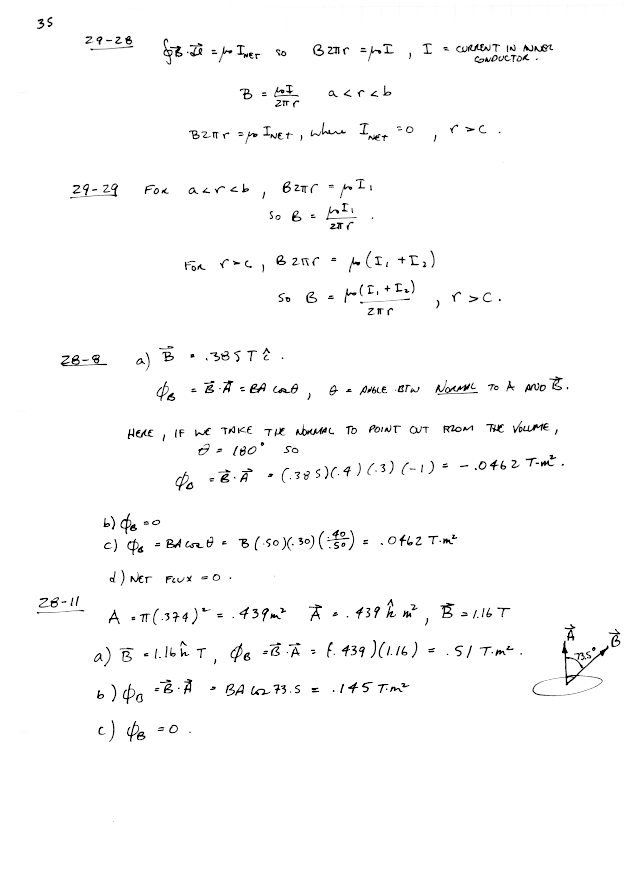 35
29-28 ∮B⃗·dl⃗ = μ₀ I_NET so B2πr = μ₀I , I = CURRENT IN INNER CONDUCTOR.
B = μ₀I / 2πr a<r<b
B2πr = μ₀ I_NET, where I_NET = 0 , r>c.
29-29 FOR a<r<b , B2πr = μ₀I₁
SO B = μ₀I₁ / 2πr .
FOR r>c , B2πr = μ₀(I₁ + I₂)
SO B = μ₀(I₁ + I₂) / 2πr , r>c.
28-8 a) B⃗ = .385 T î .
ϕ_B = B⃗·A⃗ = BA cosθ , θ = ANGLE BTW NORMAL TO A AND B⃗.
HERE , IF WE TAKE THE NORMAL TO POINT OUT FROM THE VOLUME,
θ = 180° so
ϕ_B = B⃗·A⃗ = (.385)(.4)(.3)(-1) = -.0462 T-m².
b) ϕ_B = 0
c) ϕ_B = BA cosθ = B(.50)(.30)(.40/.50) = .0462 T·m²
d) NET FLUX = 0 .
28-11 A = π(.374)² = .439m² A⃗ = .439 k̂ m² , B⃗ = 1.16 T
a) B⃗ = 1.16 k̂ T , ϕ_B = B⃗·A⃗ = (.439)(1.16) = .51 T·m² .
A⃗ 73.5° B⃗
b) ϕ_B = B⃗·A⃗ = BA cos 73.5 = .145 T·m²
c) ϕ_B = 0 .